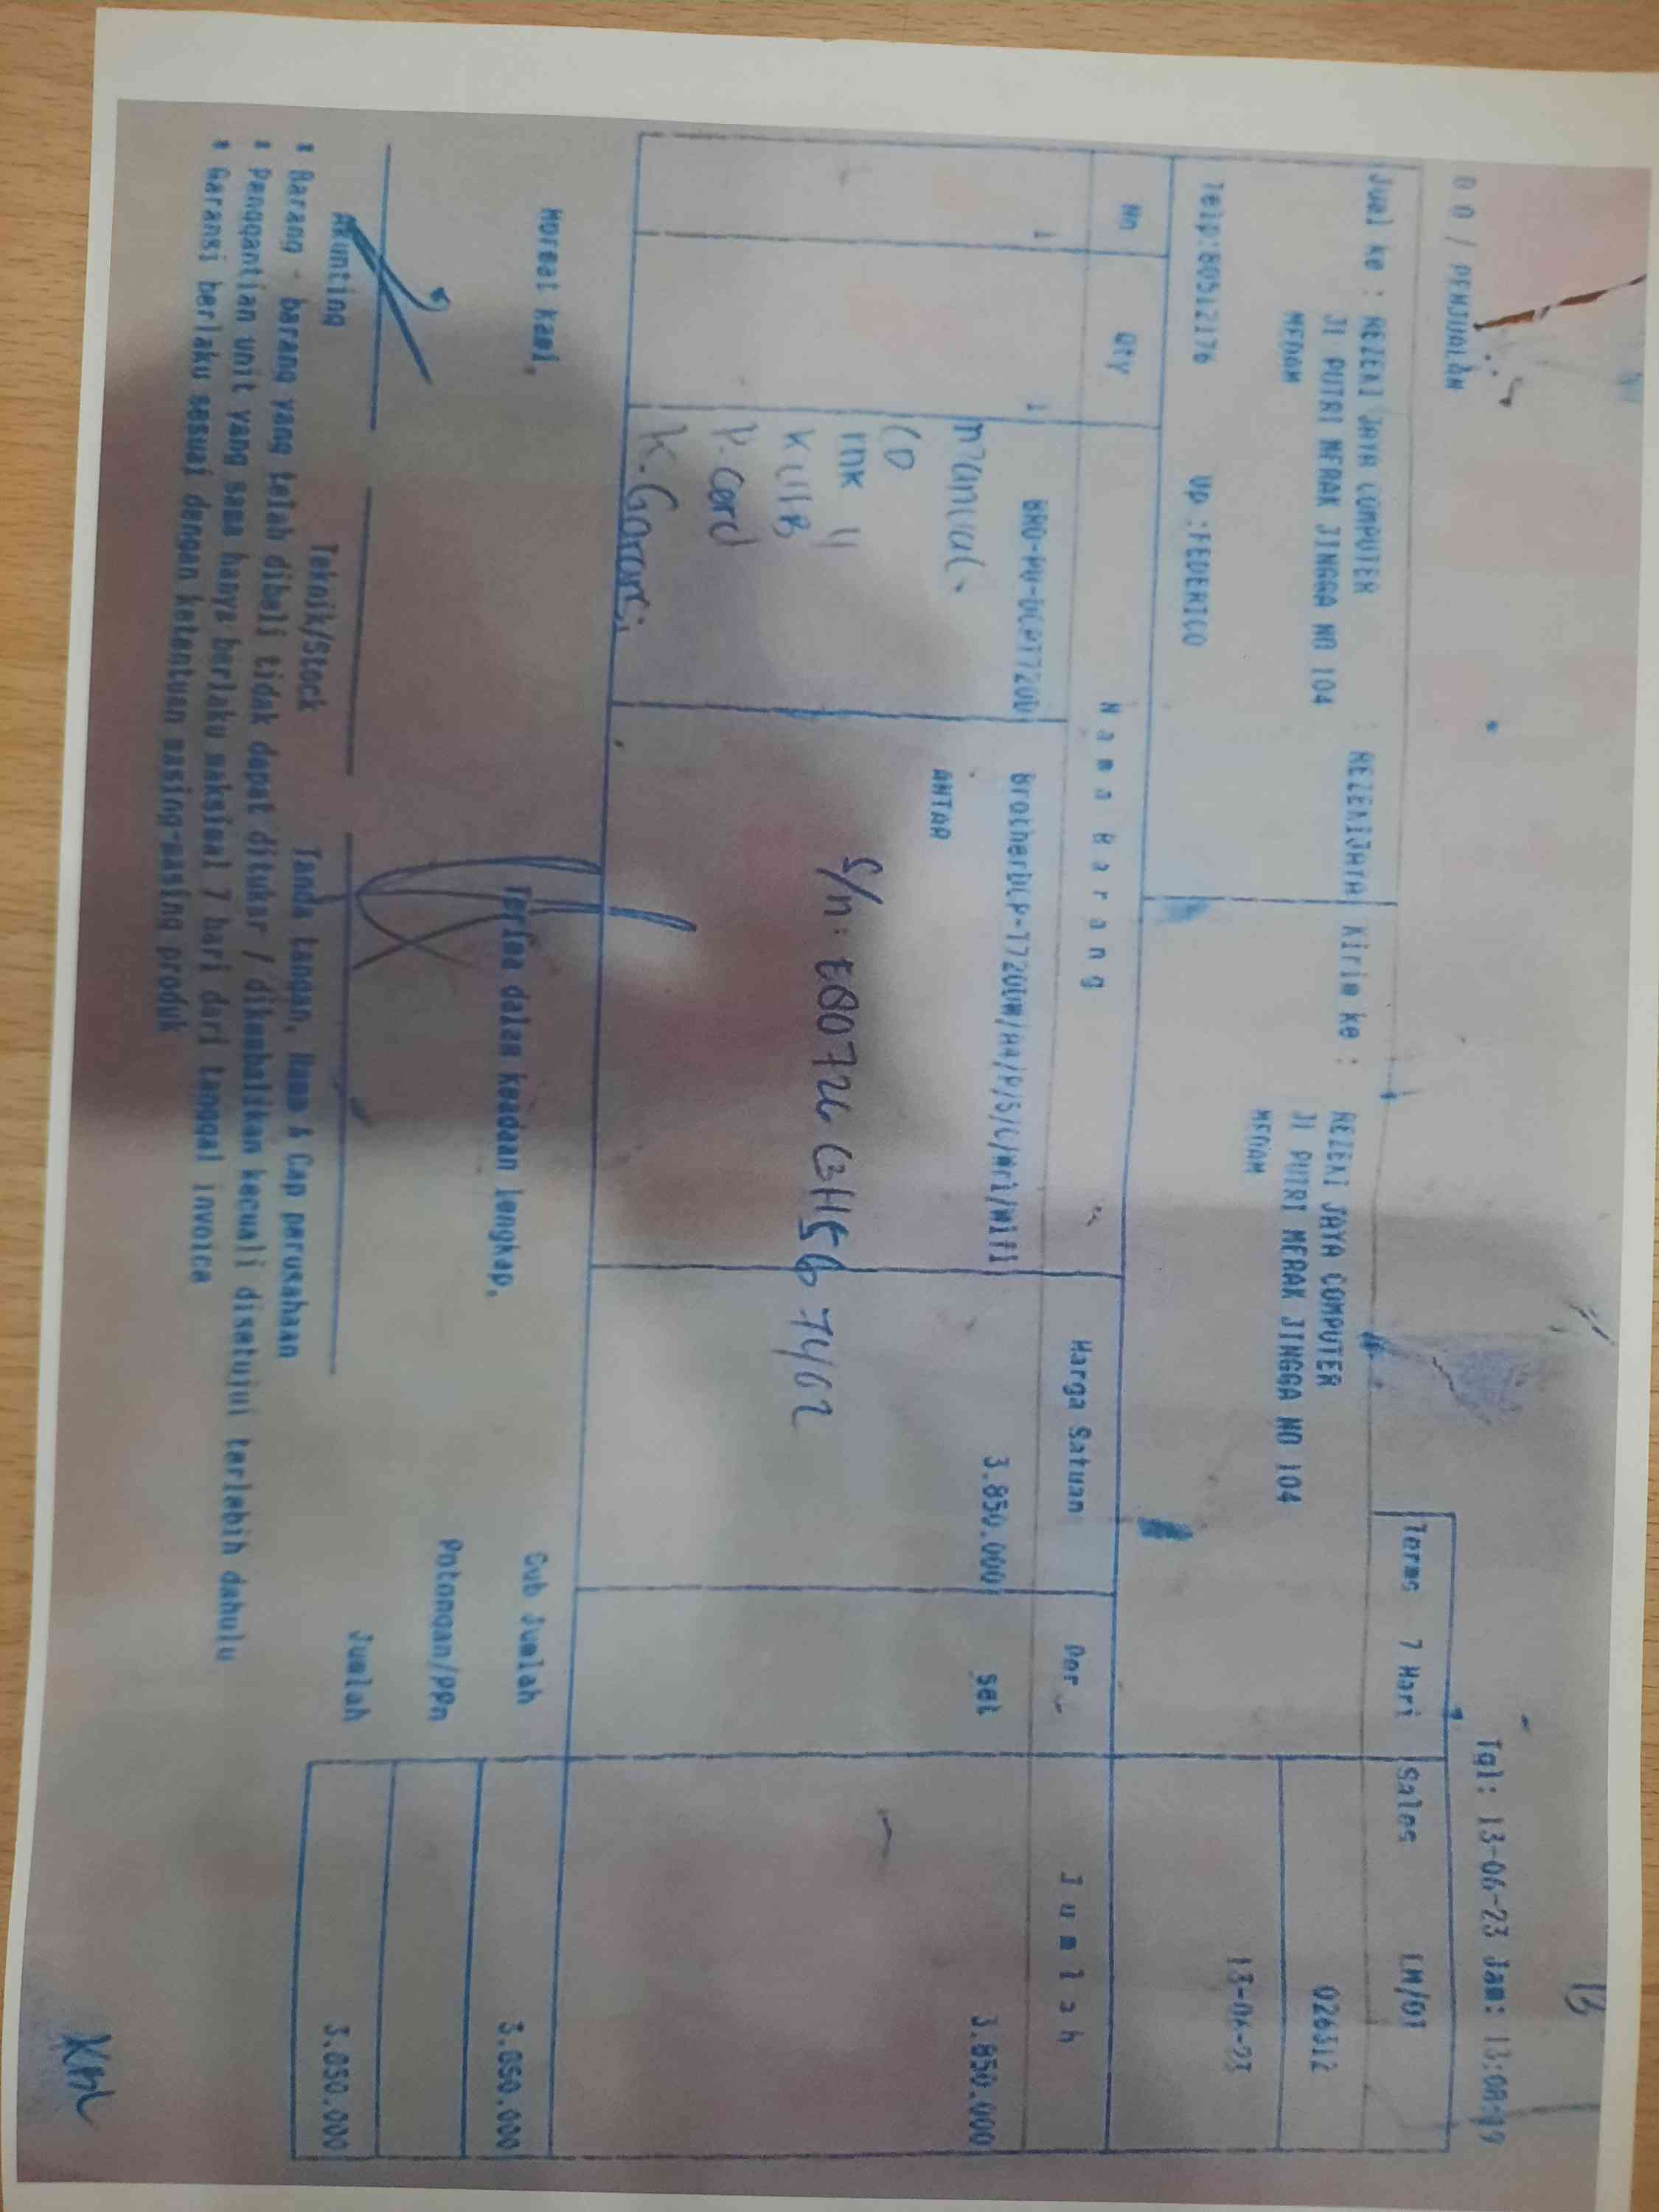 13
Tgl: 13-06-23 Jam: 13:08:19
/ PENJUALAN
Terms 7 Hari Sales
Jual ke : REZEKI JAYA COMPUTER REZEKIJAYA Kirim ke : REZEKI JAYA COMPUTER 026312
Jl PUTRI MERAK JINGGA NO 104 Jl PUTRI MERAK JINGGA NO 104
MEDAN MEDAN 13-06-23
Telp:80512176 Up :FEDERICO
No Qty Nama Barang Harga Satuan Per Jumlah
1 1 BRO-MU-DCPT720D BrotherDCP-T720DW/A4/P/S/C/Wrl/Wifi 3.850.000 set 3.850.000
manual. ANTAR
CD
ink 4
K.USB S/n: E80726 73467402
P. Cord
K. Garansi
Hormat kami, Terima dalam keadaan lengkap, Sub Jumlah 3.850.000
Potongan/PPn
Akunting Teknik/Stock Tanda tangan, Nama & Cap perusahaan Jumlah 3.850.000
* Barang - barang yang telah dibeli tidak dapat ditukar / dikembalikan kecuali disetujui terlebih dahulu
* Penggantian unit yang sama hanya berlaku maksimal 7 hari dari tanggal invoice
* Garansi berlaku sesuai dengan ketentuan masing-masing produk